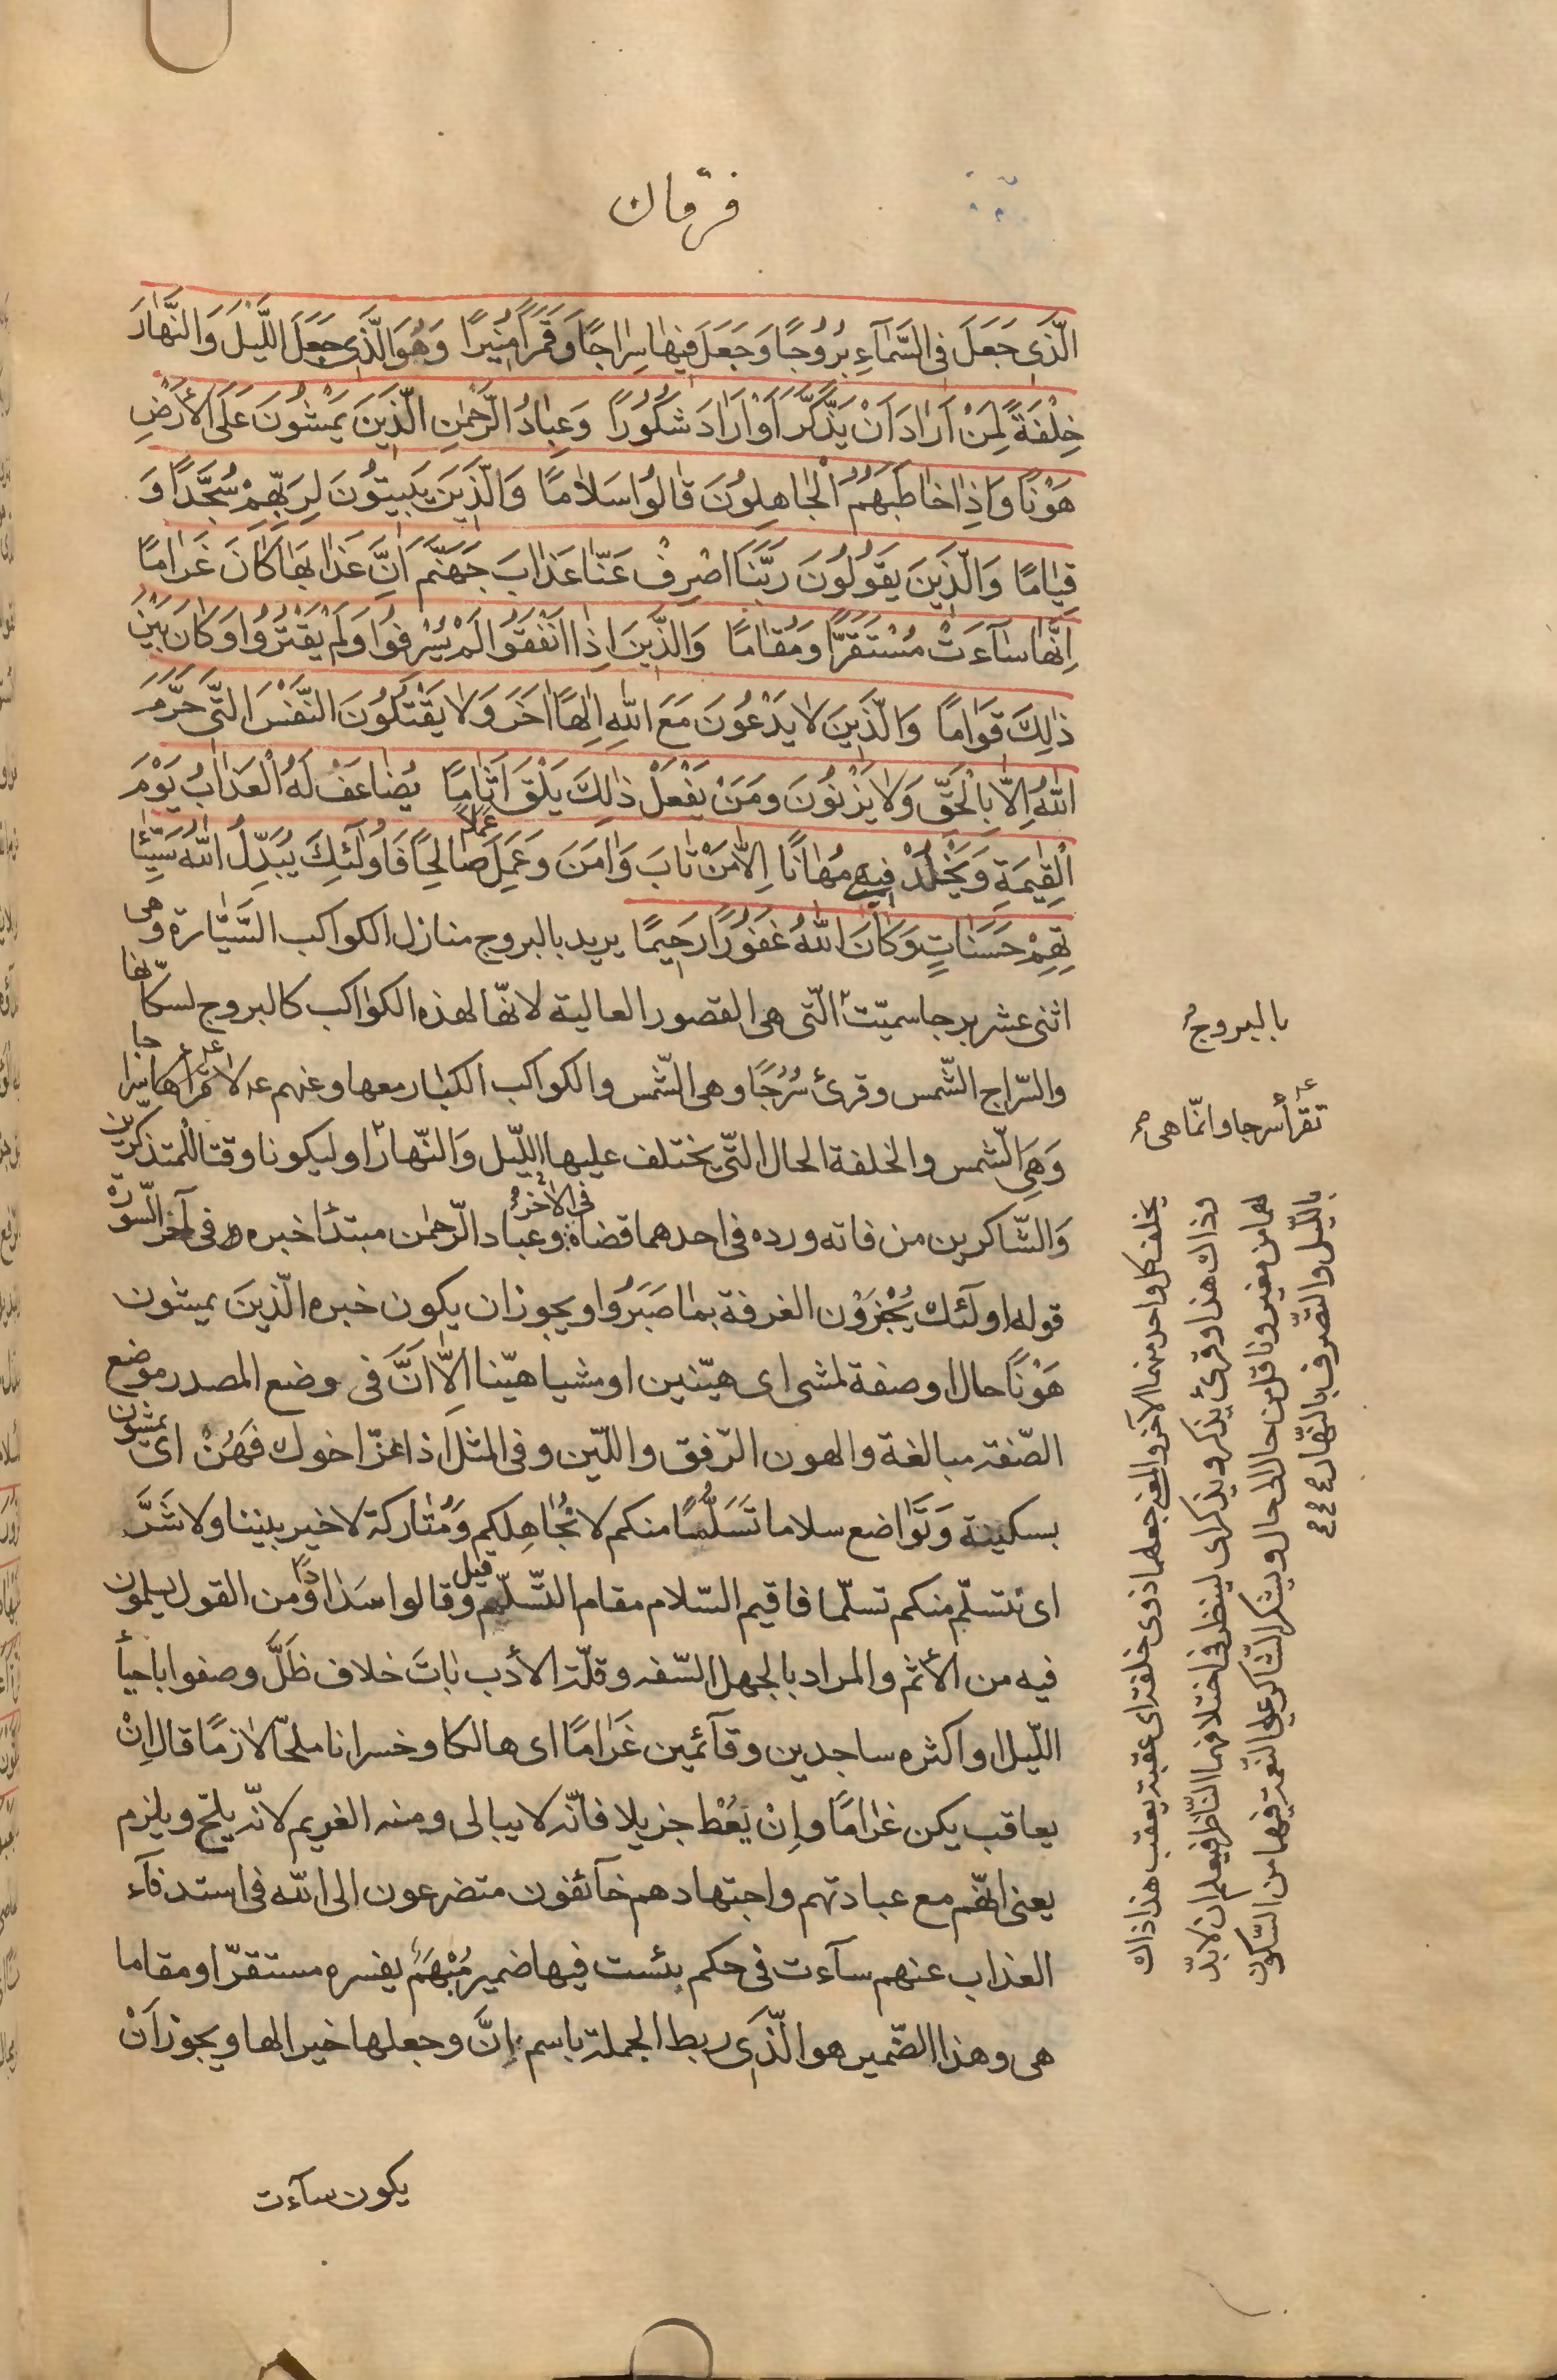 فرقان
الَّذى جَعَلَ فِى السَّمَآءِ بُرُوجًا وَجَعَلَ فيها سِراجًا وَقَمَرًا مُنيرًا وَهُوَ الَّذى جَعَلَ اللَّيْلَ وَالنَّهارَ
خِلْفَةً لِمَنْ اَرادَ اَنْ يَذَّكَّرَ اَوْ اَرادَ شُكُورًا وَعِبادُ الرَّحْمٰنِ الَّذينَ يَمْشُونَ عَلَى الْاَرْضِ
هَوْنًا وَاِذا خاطَبَهُمُ الْجاهِلُونَ قالُوا سَلامًا وَالَّذينَ يَبيتُونَ لِرَبِّهِمْ سُجَّدًا وَ
قِيامًا وَالَّذينَ يَقُولُونَ رَبَّنَا اصْرِفْ عَنّا عَذابَ جَهَنَّمَ اِنَّ عَذابَها كانَ غَرامًا
اِنَّها سآءَتْ مُسْتَقَرًّا وَمُقامًا وَالَّذينَ اِذا اَنْفَقُوا لَمْ يُسْرِفُوا وَلَمْ يَقْتُرُوا وَكانَ بَيْنَ
ذٰلِكَ قَوامًا وَالَّذينَ لا يَدْعُونَ مَعَ اللهِ اِلٰهًا اٰخَرَ وَلا يَقْتُلُونَ النَّفْسَ الَّتى حَرَّمَ
اللهُ اِلّا بِالْحَقِّ وَلا يَزْنُونَ وَمَنْ يَفْعَلْ ذٰلِكَ يَلْقَ اَثامًا يُضاعَفْ لَهُ الْعَذابُ يَوْمَ
الْقِيٰمَةِ وَيَخْلُدْ فيهِ مُهانًا اِلّا مَنْ تابَ وَاٰمَنَ وَعَمِلَ عملًا صالِحًا فَاُولٰئِكَ يُبَدِّلُ اللهُ سَيِّئا
تِهِمْ حَسَناتٍ وَكانَ اللهُ غَفُورًا رَحيمًا يريد بالبروج منازل الكواكب السَّيّارة وهى
اثنى عشر برجا سميّت الّتى هى القصور العالية لانّها لهذه الكواكب كالبروج لسكّانها
والسّراج الشّمس وقرئ سُرُجًا وهى الشّمس والكواكب الكبار معها وعنهم ع لا تقراها سرا جا
وَهِىَ الشّمس والخلفة الحال الّتى يختلف عليها اللّيل وَالنّهار او ليكونا وقتا للمتذكرين
وَالشّاكرين من فاته ورده فى احدهما قضاه فى الاخر وعباد الرّحمٰن مبتدأ خبره فى آخر السّورة
قوله اولئك يُجْزَوْن الغرفة بما صَبَرُوا ويجوز ان يكون خبره الّذينَ يمشون
هَوْنًا حال او صفة لمشى اى هيّنين او مشيا هيّنا اِلّا اَنَّ فى وضع المصدر موضع
الصّفة مبالغة والهون الرّفق واللّين وفى المثل اذا عزّ اخوك فَهُنْ اى يمشون
بسكينة وَتَواضع سلاما تَسَلُّمًا منكم لا نُجاهِلكم وَمُتاركة لا خير بيننا ولا شَرَّ
اى نتسلّم منكم تسلّما فاقيم السّلام مقام التّسلّم وقيل قالوا سَدادًا من القول يسلمون
فيه من الأثم والمراد بالجهل السّفه وقلّة الأدب باتَ خلاف ظَلَّ وصفوا باحيأ
اللّيل او اكثره ساجدين وقآئمين غَرامًا اى هالكا وخسرانا ملحّا لازمًا قال اِنْ
يعاقب يكن غرامًا وإِنْ يُعْط جزيلا فانّه لا يبالى ومنه الغريم لانّه يلحّ ويلزم
يعنى انّهم مع عبادتهم واجتهادهم خآئفون متضرعون الى الله فى استدفآء
العذاب عنهم سآءت فى حكم بئست فيها ضمير مُبْهَم يفسره مستقرّا ومقاما
هى وهذا الضّمير هو الَّذى ربط الجملة باسم إِنَّ وجعلها خبرا لها ويجوز اَنْ
يكون سآءت
بالبروج
تقرأ سرجا وانّما هى
يخلف كل واحد منهما الآخر والمعنى جعلهما ذوى خلفة اى عقبة يعقب هذا ذاك
وذاك هذا وقرئ يذكر ويذكر اى لينظر فى اختلافهما النّاظر فيعلم ان لا بدّ
لهما من مغير وناقل من حال الى حال ويشكر الشّاكر على النّعمة فيهما من السّكون
باللّيل والتّصرف بالنّهار